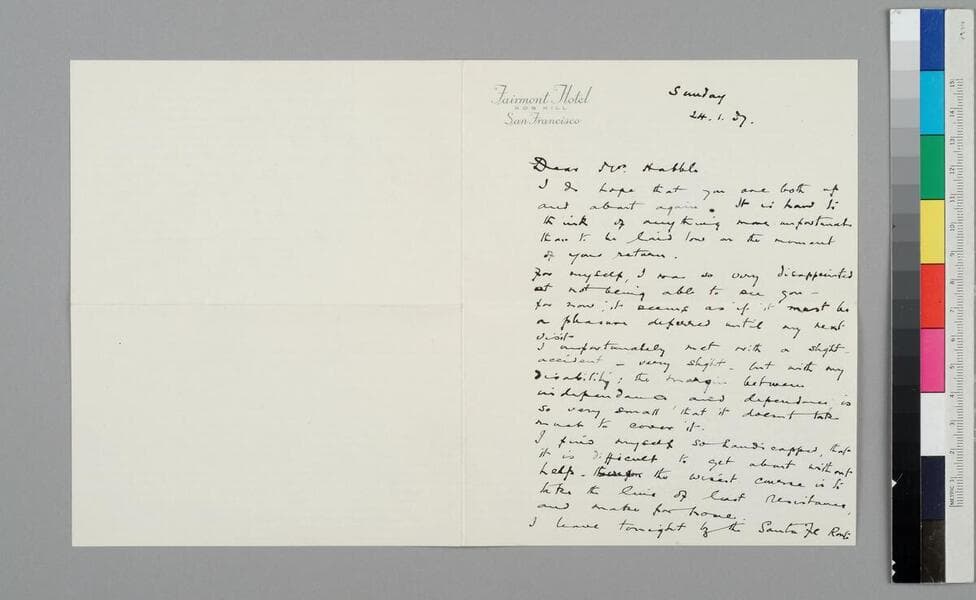 Fairmont Hotel
NOB HILL
San Francisco
Sunday
24. 1. 37.
Dear Mr. Hubble
I do hope that you are both up
and about again. It is hard to
think of anything more unfortunate
than to be laid low on the moment
of your return.
For myself, I was so very disappointed
at not being able to see you –
for now, it seems as if it must be
a pleasure deferred until my next
visit
I unfortunately met with a slight
accident – very slight – but with my
disability, the margin between
independence and dependence is
so very small that it doesnt take
much to cover it.
I find myself so handicapped, that
it is difficult to get about without
help – the wisest course is to
take the line of least resistance,
and make for home.
I leave tonight by the Santa Fe Route